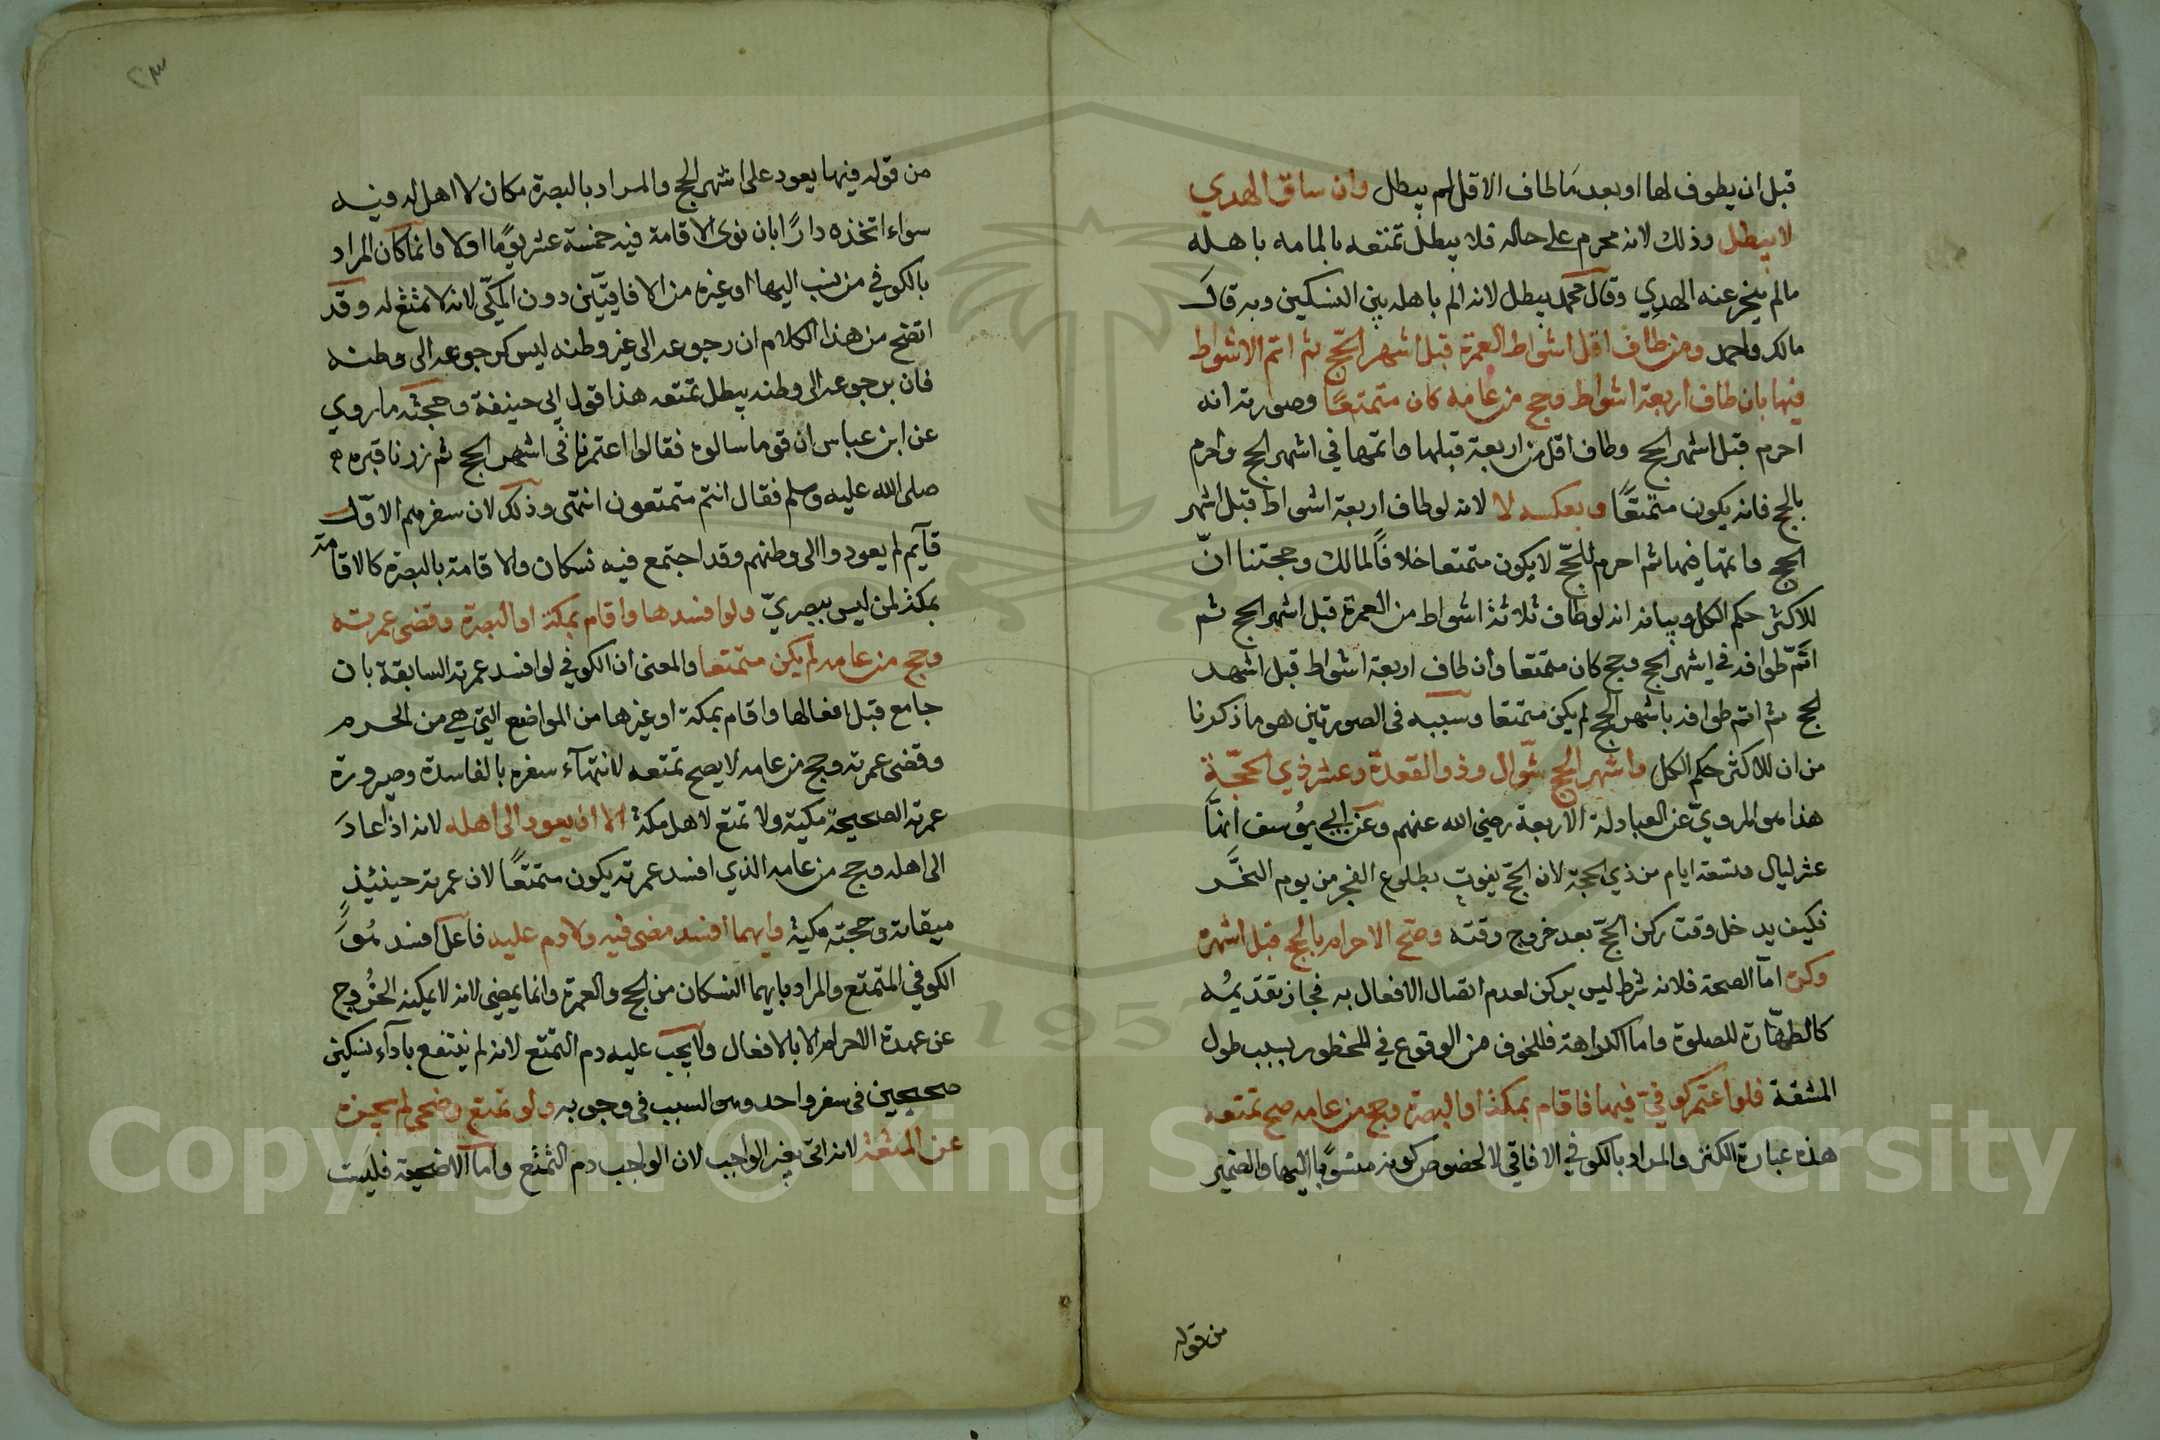 قبل ان يطوف لها او بعد ما طاف الاقل لم يبطل وان ساق الهدي
لا يبطل وذلك لانه محرم على حاله فلا يبطل تمتعه بالمامه باهله
مالم ينحر عنه الهدي وقال محمد يبطل لانه الم باهله بين النسكين وبه قال
مالك واحمد ومن طاف اقل اشواط العمرة قبل اشهر الحج ثم اتم الاشواط
فيها بان طاف اربعة اشواط وحج من عامه كان متمتعًا وصورته انه
احرم قبل اشهر الحج وطاف اقل من اربعة قبلها واتمها في اشهر الحج واحرم
بالحج فانه يكون متمتعًا وبعكسه لا لانه لو طاف اربعة اشواط قبل اشهر
الحج واتمها فيها ثم احرم للحج لا يكون متمتعا خلافًا لمالك وحجتنا انّ
للاكثر حكم الكل وبيانه انه لو طاف ثلاثة اشواط من العمرة قبل اشهر الحج ثم
اتمّ طوافه في اشهر الحج وحج كان متمتعا وان طاف اربعة اشواط قبل اشهر
الحج ثم اتم طوافه باشهر الحج لم يكن متمتعا وسببه في الصورتين هو ما ذكرنا
من ان للاكثر حكم الكل واشهر الحج شوّال وذو القعدة وعشر ذي الحجّة
هذا هو المرويّ عن العبادلة الاربعة رضي الله عنهم وعن ابي يوُسف انهَّا
عشر ليال وتسعة ايام من ذي الحجة لان الحجّ يفوت بطلوع الفجر من يوم النحَّر
فكيف يدخل وقت ركن الحجّ بعد خروج وقته وصح الاحرام بالحج قبل اشهره
وكره امّا الصحة فلانه شرط ليس بركن لعدم اتصال الافعال به فجاز تقديمُه
كالطهّارة للصلوة واما الكراهة فللخوف من الوقوع في المحظور بسبب طول
المشقة فلو اعتمر كوفيّ فيها فاقام بمكة او البصرة وحج من عامه صح تمتعه
هذه عبارة الكنز والمراد بالكوفي الافاقي لا لخصوص كونه منسوبًا اليها والضمير
من قوله
٢٣
من قوله فيها يعود على اشهر الحج والمراد بالبصرة مكان لا اهل له فيه
سواء اتخذه دارًا بان نوى الاقامة فيه خمسة عشر يومًا اولا وانما كان المراد
بالكوفي من نسب اليها او غيره من الافاقيّين دون المكيّ لانه لا تمتع له وقد
اتضح من هذا الكلام ان رجوعه الى غير وطنه ليس كرجوعه الى وطنه
فان برجوعه الى وطنه يبطل تمتعه هذا قول ابي حنيفة وحجته ما روي
عن ابن عباس ان قوما سالوه فقالوا اعتمرنا في اشهر الحج ثم زرنا قبره
صلى الله عليه وسلم فقال انتم متمتعون انتهى وذلك لان سفرهم الاوّل
قآيم لم يعودوا الى وطنهم وقد اجتمع فيه نسكان والاقامة بالبصرة كالاقامة
بمكة لمن ليس ببصريّ ولو افسدها واقام بمكة او البصرة وقضى عمرته
وحج من عامه لم يكن متمتعا والمعنى ان الكوفي لو افسد عمرته السابقة بان
جامع قبل افعالها واقام بمكة او غيرها من المواضع التي هي من الحرم
وقضى عمرته وحج من عامه لا يصح تمتعه لانتهآء سفره بالفاسدة وصيرورة
عمرته الصحيحة مكية ولا تمتع لاهل مكة الا ان يعود الى اهله لانه اذا عادَ
الى اهله وحج من عامه الذي افسد عمرته يكون متمتعًا لان عمرته حينئذٍ
ميقاتة وحجته مكية وايهما افسد مضى فيه ولا دم عليه فاعل افسد هُوَ
الكوفي المتمتع والمراد بايهما النسكان من الحج والعمرة وانما يمضي لانه لا يمكنه الخرُوج
عن عهدة الاحرام الا بالافعال ولا يجب عليه دم التمتع لانه لم ينتفع بآدآء نسكين
صحيحين في سفر واحد وهو السبب في وجوبه ولو تمتع وضحى لم يجزه
عن المتعة لانه اتى بغير الواجب لان الواجب دم التمتع وامآ الاضحية فليست
Copyright © King Saud University
1957